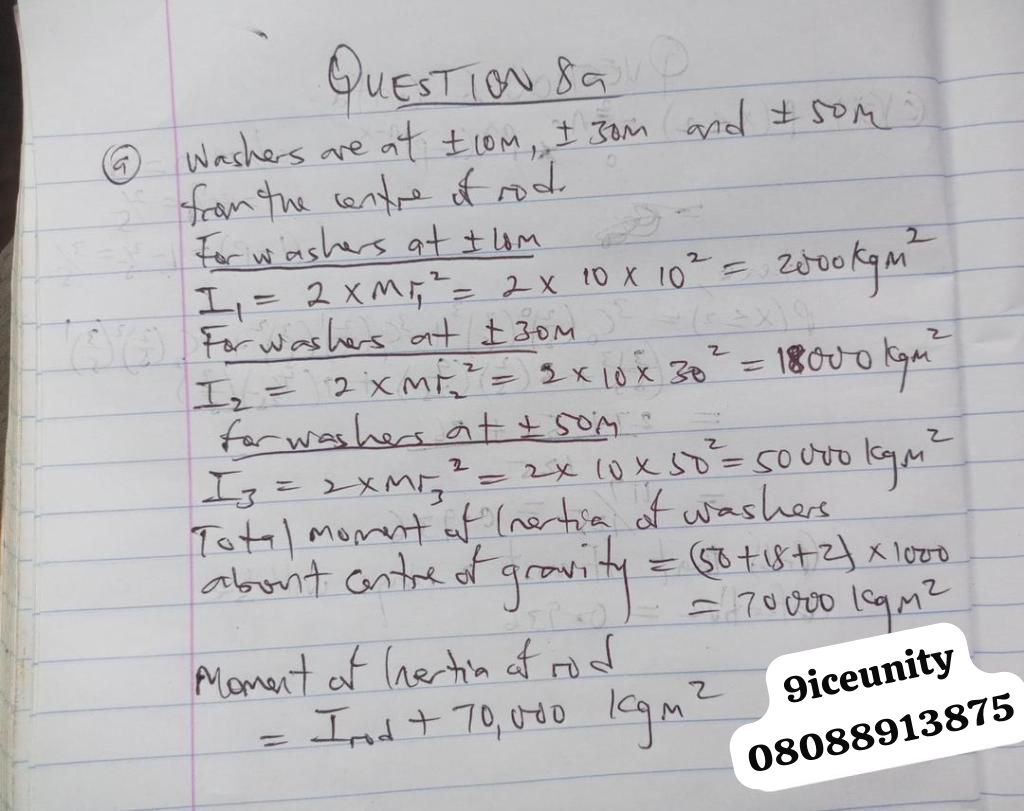 QUESTION 8a
(a) Washers are at ±10m, ±30m and ±50m
from the centre of rod.
For washers at ±10m
I₁ = 2 × mr₁² = 2 × 10 × 10² = 2000 kgm²
For washers at ±30m
I₂ = 2 × mr₂² = 2 × 10 × 30² = 18000 kgm²
for washers at ±50m
I₃ = 2 × mr₃² = 2 × 10 × 50² = 50000 kgm²
Total moment of Inertia of washers
about centre of gravity = (50+18+2) × 1000
= 70000 kgm²
Moment of Inertia of rod
= I_rod + 70,000 kgm²
9iceunity
08088913875